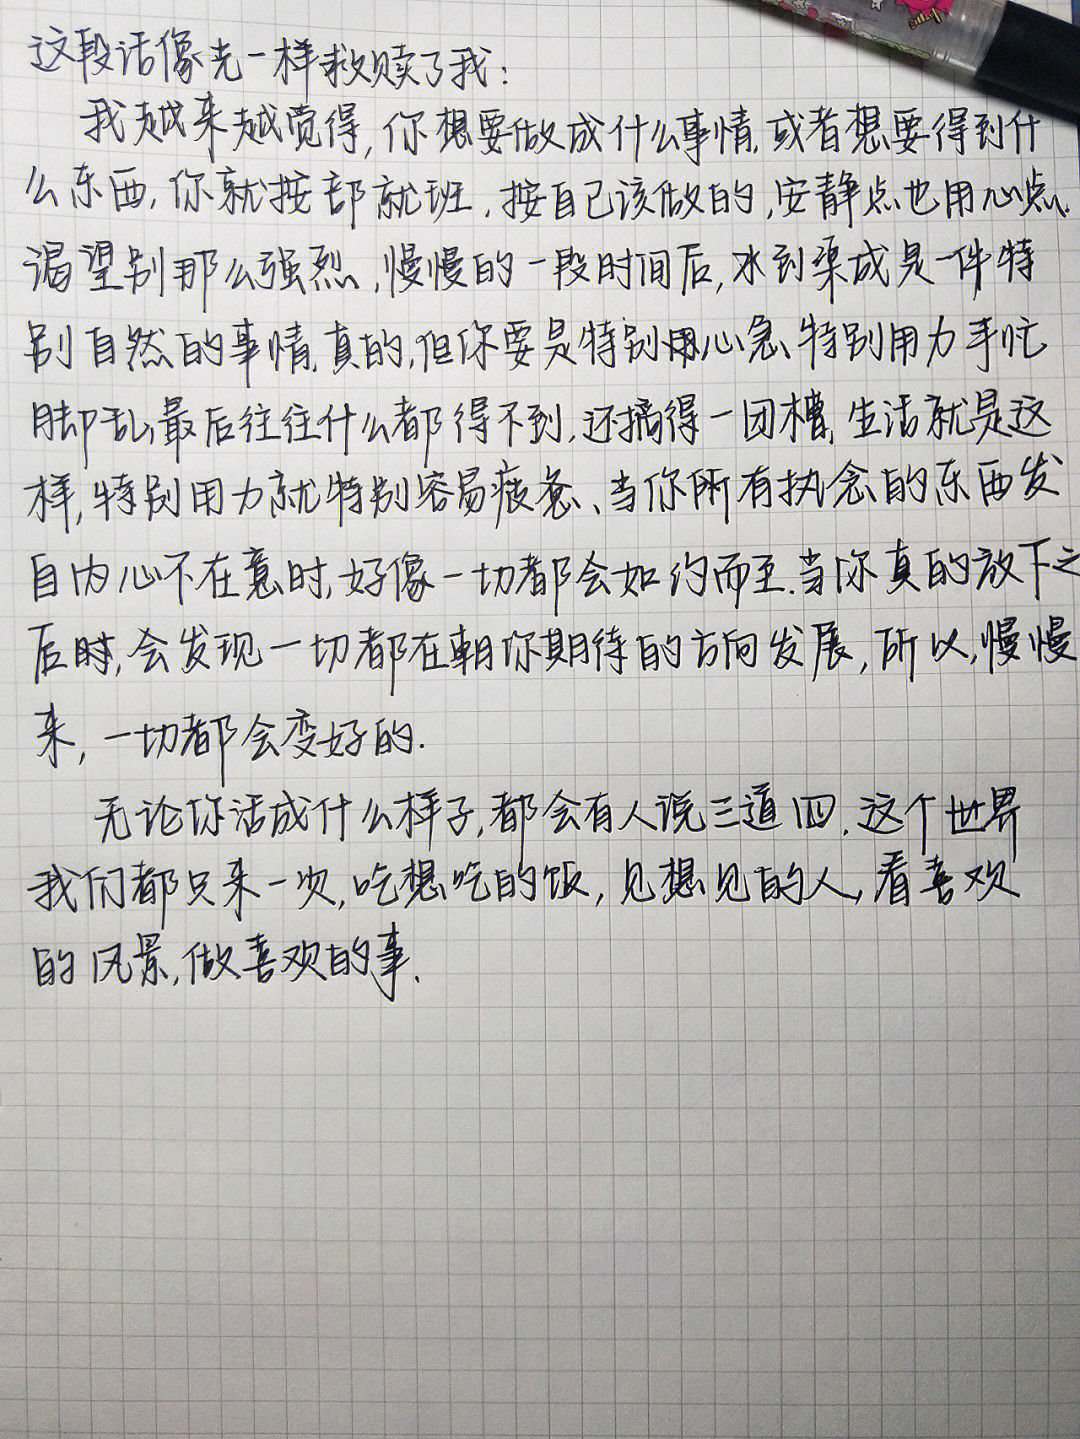 这段话像光一样救赎了我:
我越来越觉得,你想要做成什么事情,或者想要得到什
么东西,你就按部就班,按自己该做的,安静点也用心点,
渴望别那么强烈,慢慢的一段时间后,水到渠成是一件特
别自然的事情,真的,但你要是特别用心急、特别用力手忙
脚乱,最后往往什么都得不到,还搞得一团槽,生活就是这
样,特别用力就特别容易疲惫、当你所有执念的东西发
自内心不在意时,好像一切都会如约而至.当你真的放下之
后时,会发现一切都在朝你期待的方向发展,所以,慢慢
来,一切都会变好的.
无论你活成什么样子,都会有人说三道四,这个世界
我们都只来一次,吃想吃的饭,见想见的人,看喜欢
的风景,做喜欢的事.